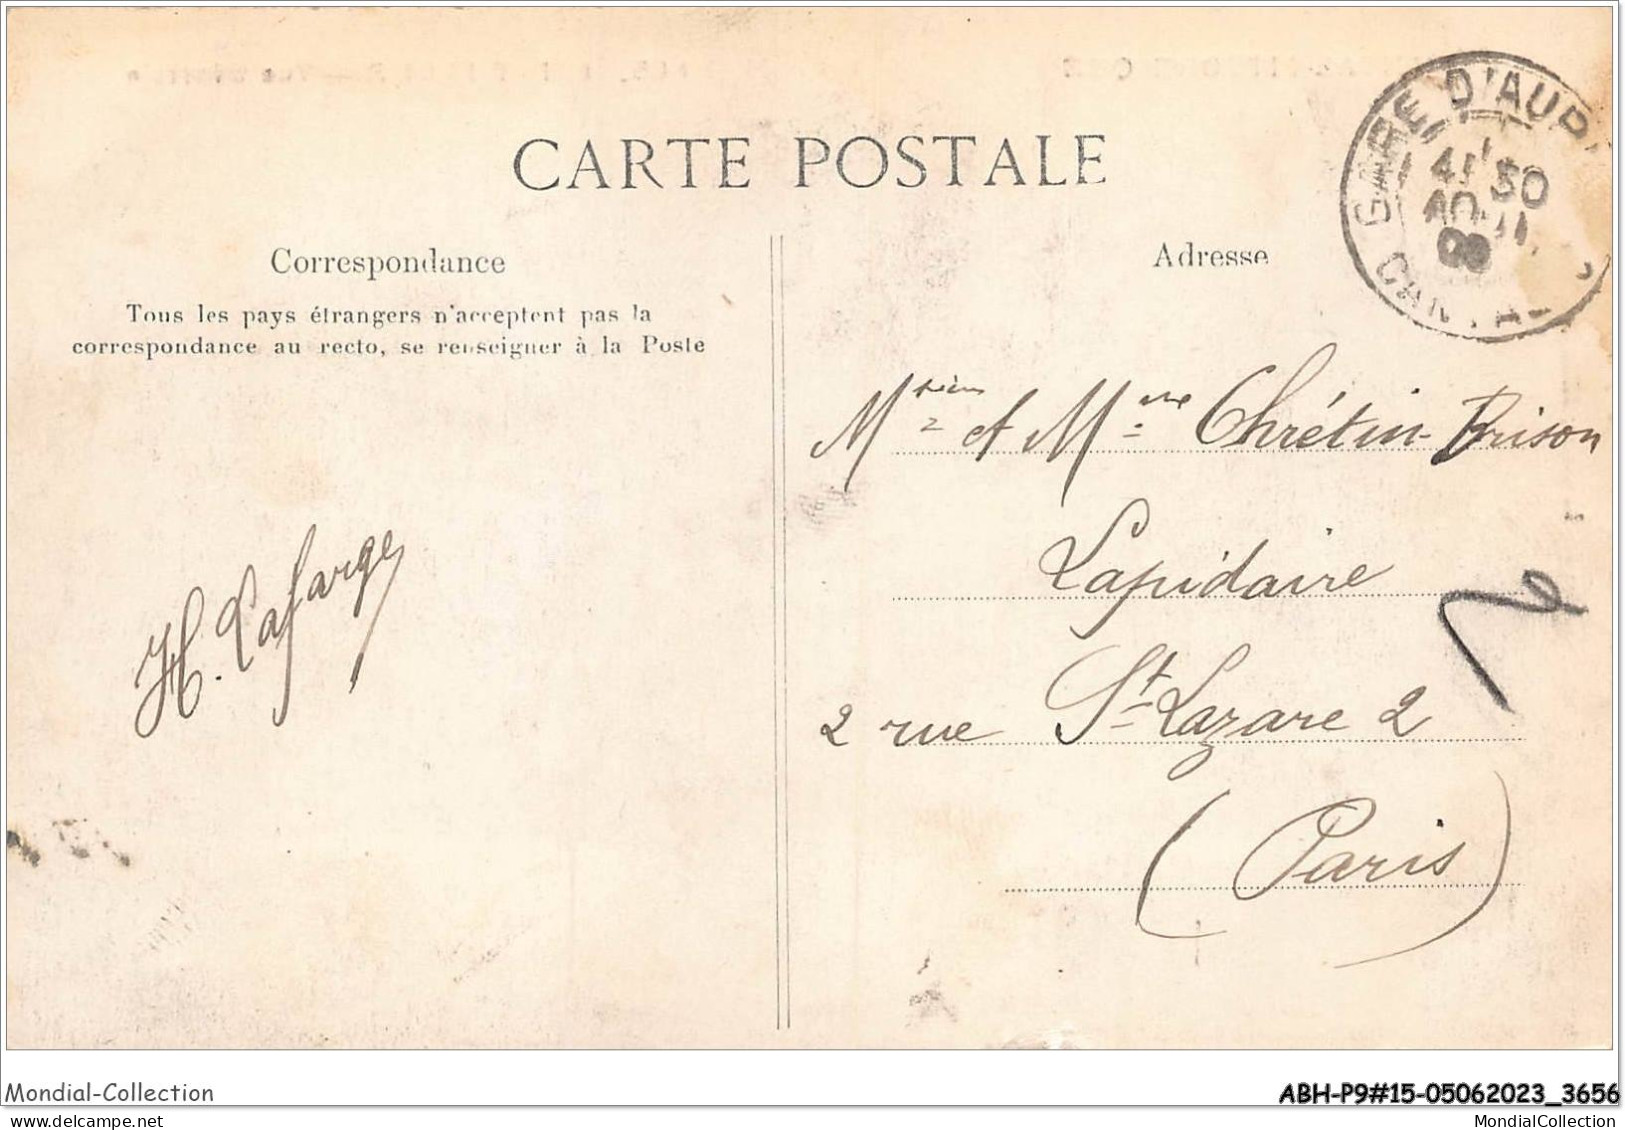 CARTE POSTALE
Correspondance
Tous les pays étrangers n'acceptent pas la
correspondance au recto, se renseigner à la Poste
H. Lafarge
Adresse
GARE D'AUR
CANTAL
30
09
et Mme Chrétin-Brison
Lapidaire
2 rue St Lazare 2
(Paris)
Mondial-Collection
ABH-P9#15-05062023_3656
delcampe.net
MondialCollection